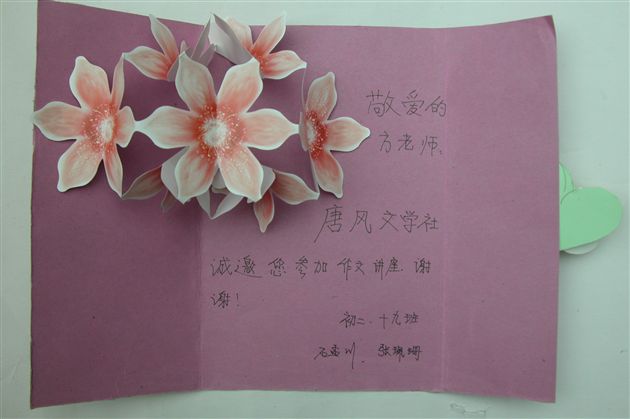 敬爱的
方老师:
唐风文学社
诚邀您参加作文讲座.谢
谢!
初二.十九班
石孟川.张珮珊